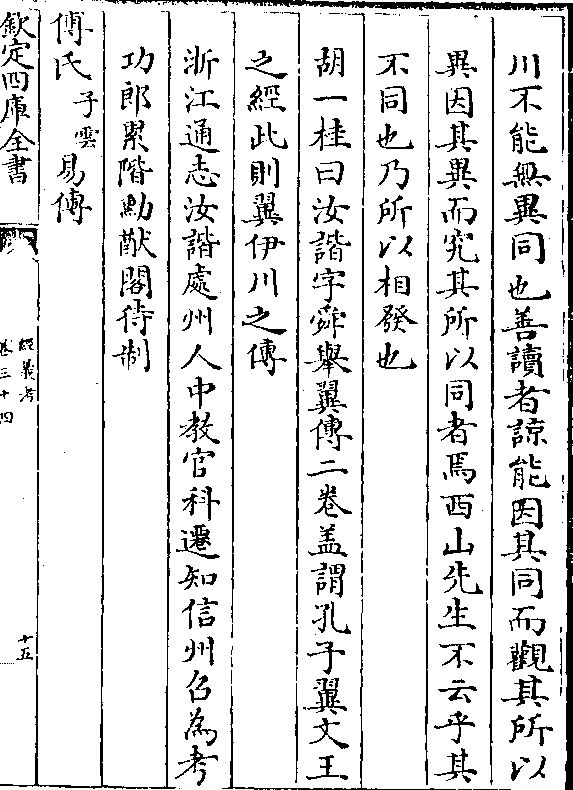 川不能無異同也善讀者諒能因其同而觀其所以
異因其異而究其所以同者焉西山先生不云乎其
不同也乃所以相發也
胡一桂曰汝諧字舜舉翼傳二卷盖謂孔子翼文王
之經此則翼伊川之傳
浙江通志汝諧處州人中教官科遷知信州召為考
功郎累階勳猷閣待制
傅氏子雲易傳
欽定四庫全書
經義考
卷三十四
十五